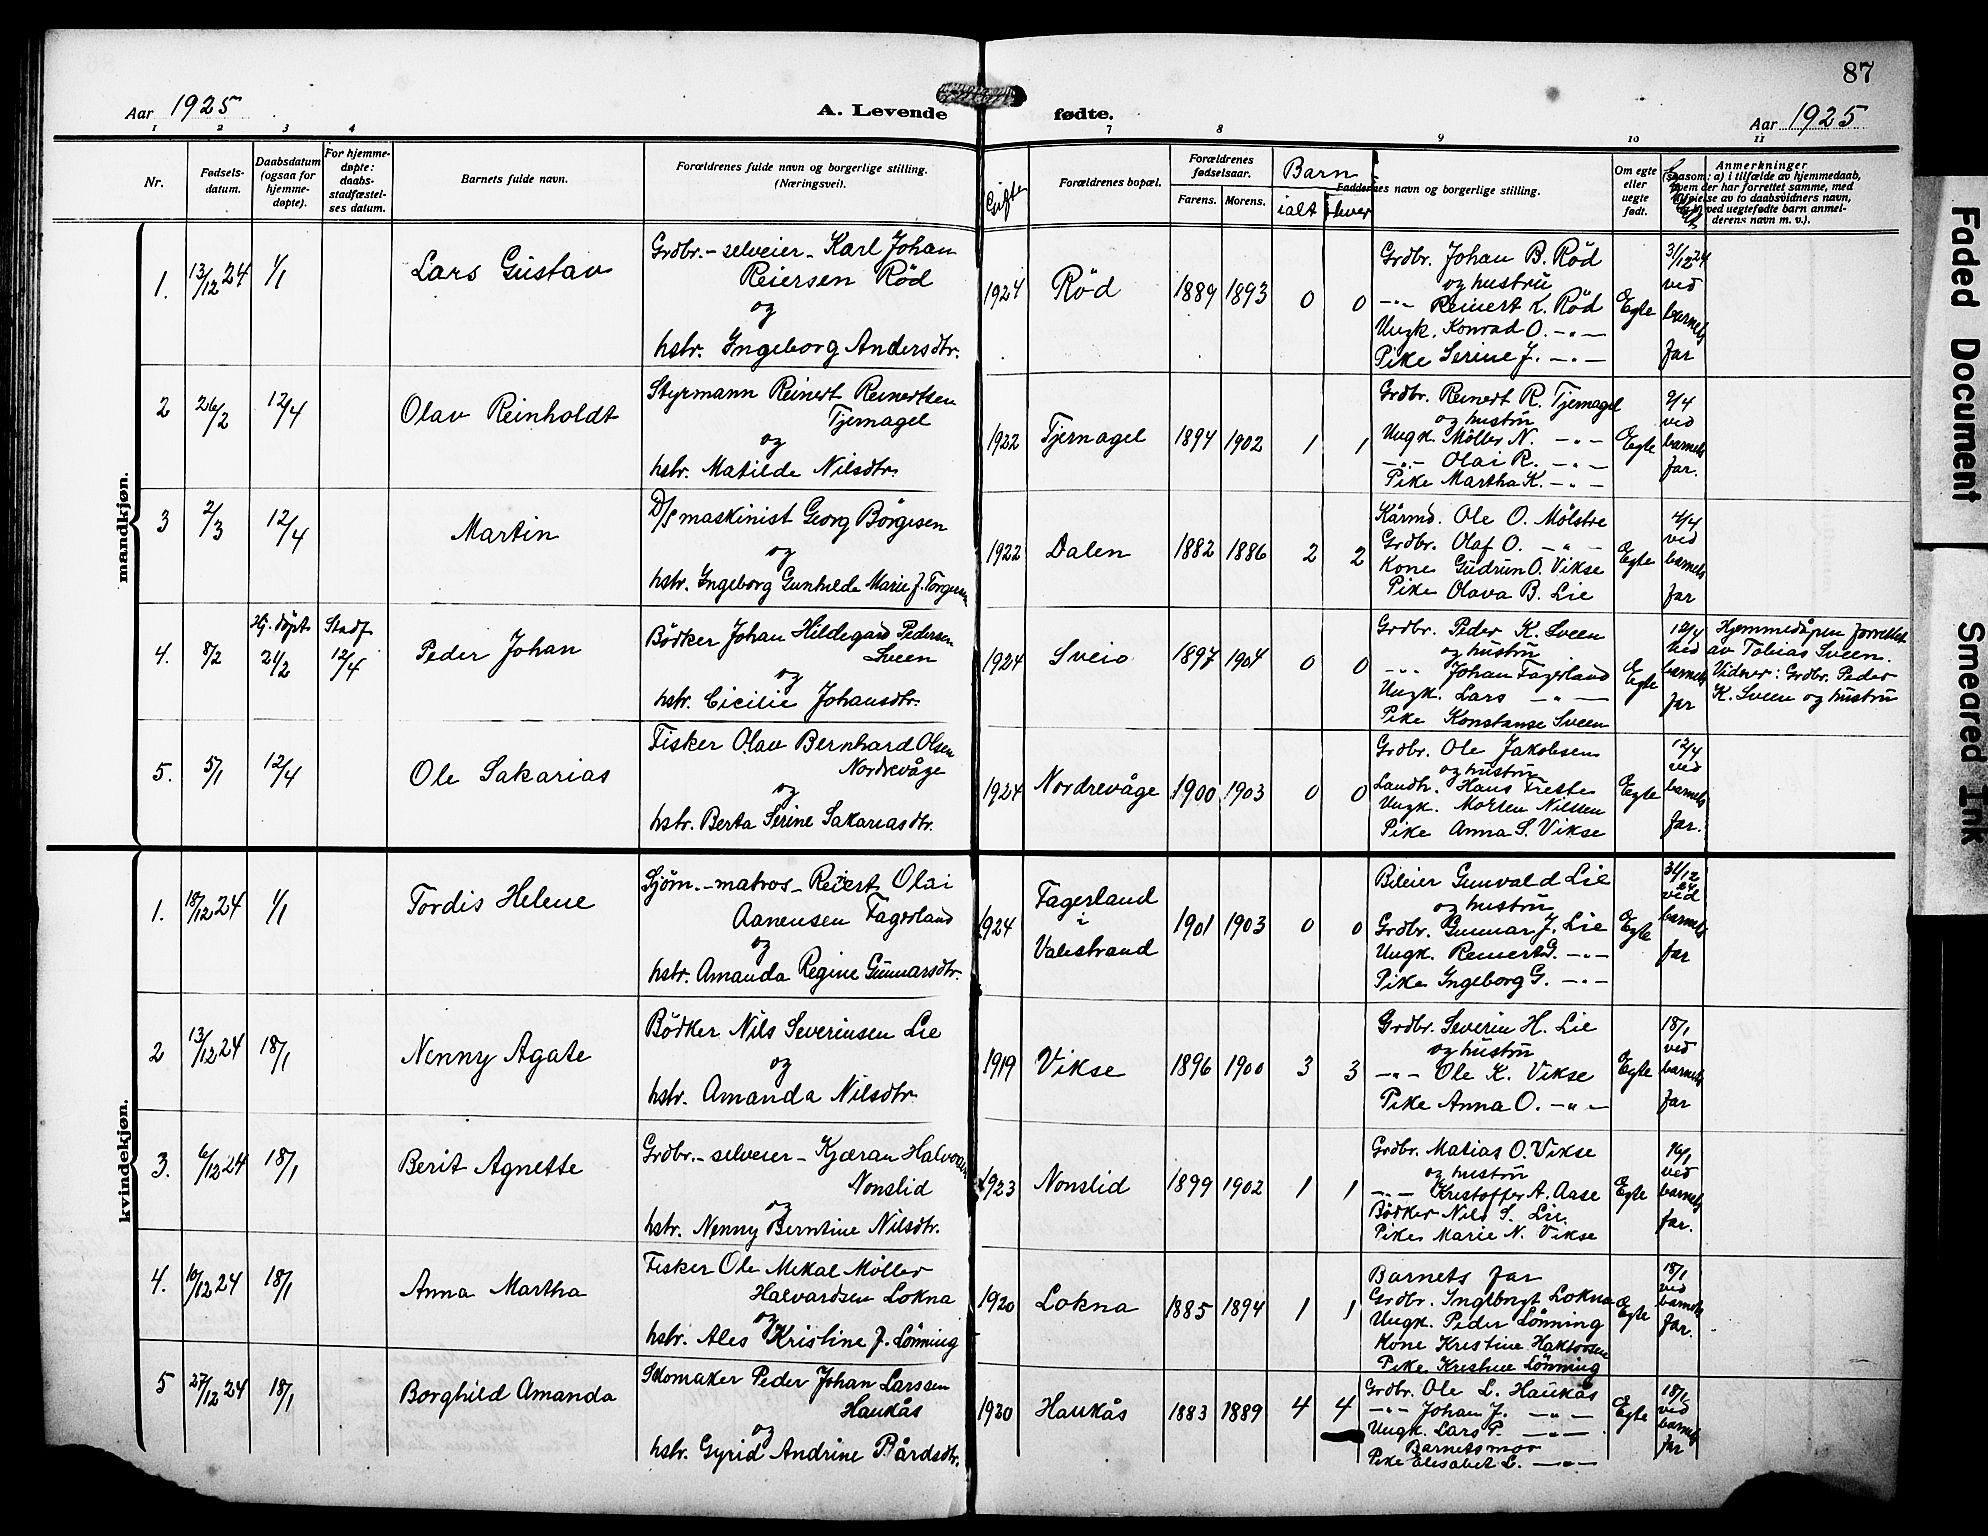 87
Aar 1925
A. Levende fødte.
Aar 1925
1 2 3 4 7 8 9 10 11
Nr.
Fødsels-
datum.
Daabsdatum
(ogsaa for
hjemme-
døpte).
For hjemme-
døpte:
daabs-
stadfæstel-
ses datum.
Barnets fulde navn.
Forældrenes fulde navn og borgerlige stilling.
(Næringsvei).
Gifte
Forældrenes bopæl.
Forældrenes
fødselsaar.
Farens. Morens.
Barn
ialt i hver
Faddernes navn og borgerlige stilling.
Om egte
eller
uegte
født.
Anmerkninger
(saasom: a) i tilfælde av hjemmedaab,
hvem der har forrettet samme, med
tilføielse av to daabsvidners navn,
b) ved uegtefødte barn anmel-
derens navn m. v.).
mandkjøn.
1. 13/12 24 1/1 Lars Gustav
Grdbr. - selveier - Karl Johan
Reiersen Rød
og
hstr. Ingeborg Andersdtr.
1924 Rød 1889 1893 0 0
Grdbr. Johan B. Rød
og hustru
-"- Reinert K. Rød
Ungk. Konrad O. -"-
Pike Serine J. -"-
Egte
31/12 24
ved
barnets
far
2 26/2 12/4 Olav Reinholdt
Styrmann Reinert Reinertsen
Tjernagel
og
hstr. Matilde Nilsdtr.
1922 Tjernagel 1894 1902 1 1
Grdbr. Reinert R. Tjernagel
og hustru
Ungk. Møller N. -"-
-"- Olai R. -"-
Pike Martha K. -"-
Egte
9/4
ved
barnets
far.
3 2/3 12/4 Martin
D/S maskinist Georg Børgesen
og
hstr. Ingeborg Gunhilde Marie J. Torgersen
1922 Dalen 1882 1886 2 2
Kårmd. Ole O. Mølstre
Grdbr. Olaf O. -"-
Kone Gudrun O. Vikse
Pike Olava B. Lie
Egte
4/4
ved
barnets
far
4. 8/2 Hj. døpt 21/2 Stadf 12/4 Peder Johan
Bødker Johan Hildegard Pedersen
Sveen
og
hstr. Cicilie Johansdtr.
1924 Sveio 1897 1904 0 0
Grdbr. Peder K. Sveen
og hustru
-"- Johan Fagerland
Ungk. Lars -"-
Pike Konstanse Sveen
Egte
12/4
ved
barnets
far
Hjemmedåpen forrettet
av Tobias Sveen.
Vidner: Grdbr. Peder
K. Sveen og hustru
5. 5/1 12/4 Ole Sakarias
Fisker Olav Bernhard Olsen
Nordrevåge
og
hstr. Berta Serine Sakariasdtr.
1924 Nordrevåge 1900 1903 0 0
Grdbr. Ole Jakobsen
og hustru
Landh. Hans Trette
Ungk. Morten Nilssen
Pike Anna S. Vikse
Egte
12/4
ved
barnets
far.
kvindekjøn.
1. 18/12 24 1/1 Tordis Helene
Sjøm. - matros - Reiert Olai
Aanensen Fagerland
og
hstr. Amanda Regine Gunnarsdtr.
1924 Fagerland
i
Valestrand 1901 1903 0 0
Bileier Gunvald Lie
og hustru
Grdbr. Gunnar J. Lie
Ungk. Reinert G. -"-
Pike Ingeborg G. -"-
Egte
31/12
24
ved
barnets
far
2 13/12 24 18/1 Nenny Agate
Bødker Nils Severinsen Lie
og
hstr. Amanda Nilsdtr.
1919 Vikse 1896 1900 3 3
Grdbr. Severin H. Lie
og hustru
-"- Ole K. Vikse
Pike Anna O. -"-
Egte
18/1
ved
barnets
far
3. 6/12 24 18/1 Berit Agnette
Grdbr. - selveier - Kjæran Halvorsen
Nonslid
og
hstr. Nenny Berntine Nilsdtr.
1923 Nonslid 1899 1902 1 1
Grdbr. Matias O. Vikse
og hustru
-"- Kristoffer A. Aase
Bødker Nils S. Lie.
Pike Marie N. Vikse
Egte
16/1
ved
barnets
far.
4. 10/12 24 18/1 Anna Martha
Fisker Ole Mikal Møller
Halvardsen Lokna
og
hstr. Ales Kristine J. Lønning
1920 Lokna 1885 1894 1 1
Barnets far
Grdbr. Ingebrygt Lokna
Ungk. Peder Lønning
Kone Kristine Haktorsen
Pike Kristine Lønning
Egte
18/1
ved
barnets
far.
5 27/12 24 18/1 Borghild Amanda
Skomaker Peder Johan Larssen
Haukås
og
hstr. Gyrid Andrine P. Bårdsdtr.
1920 Haukås 1883 1889 4 4
Grdbr. Ole L. Haukås
-"- Johan J. -"-
Ungk. Lars P. -"-
Barnets mor
Pike Elisabet L. -"-
Egte
18/1
ved
barnets
far
Faded Document
Smeared Ink